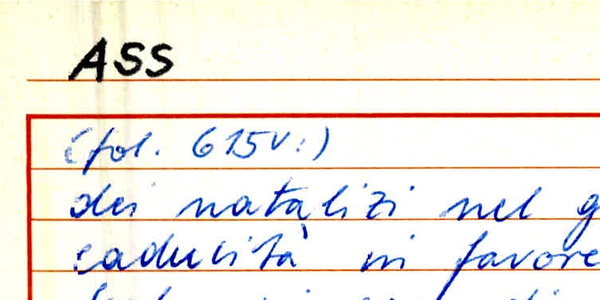 ASS
(fol. 615v:)
dei natalizi nel
caducità in favore